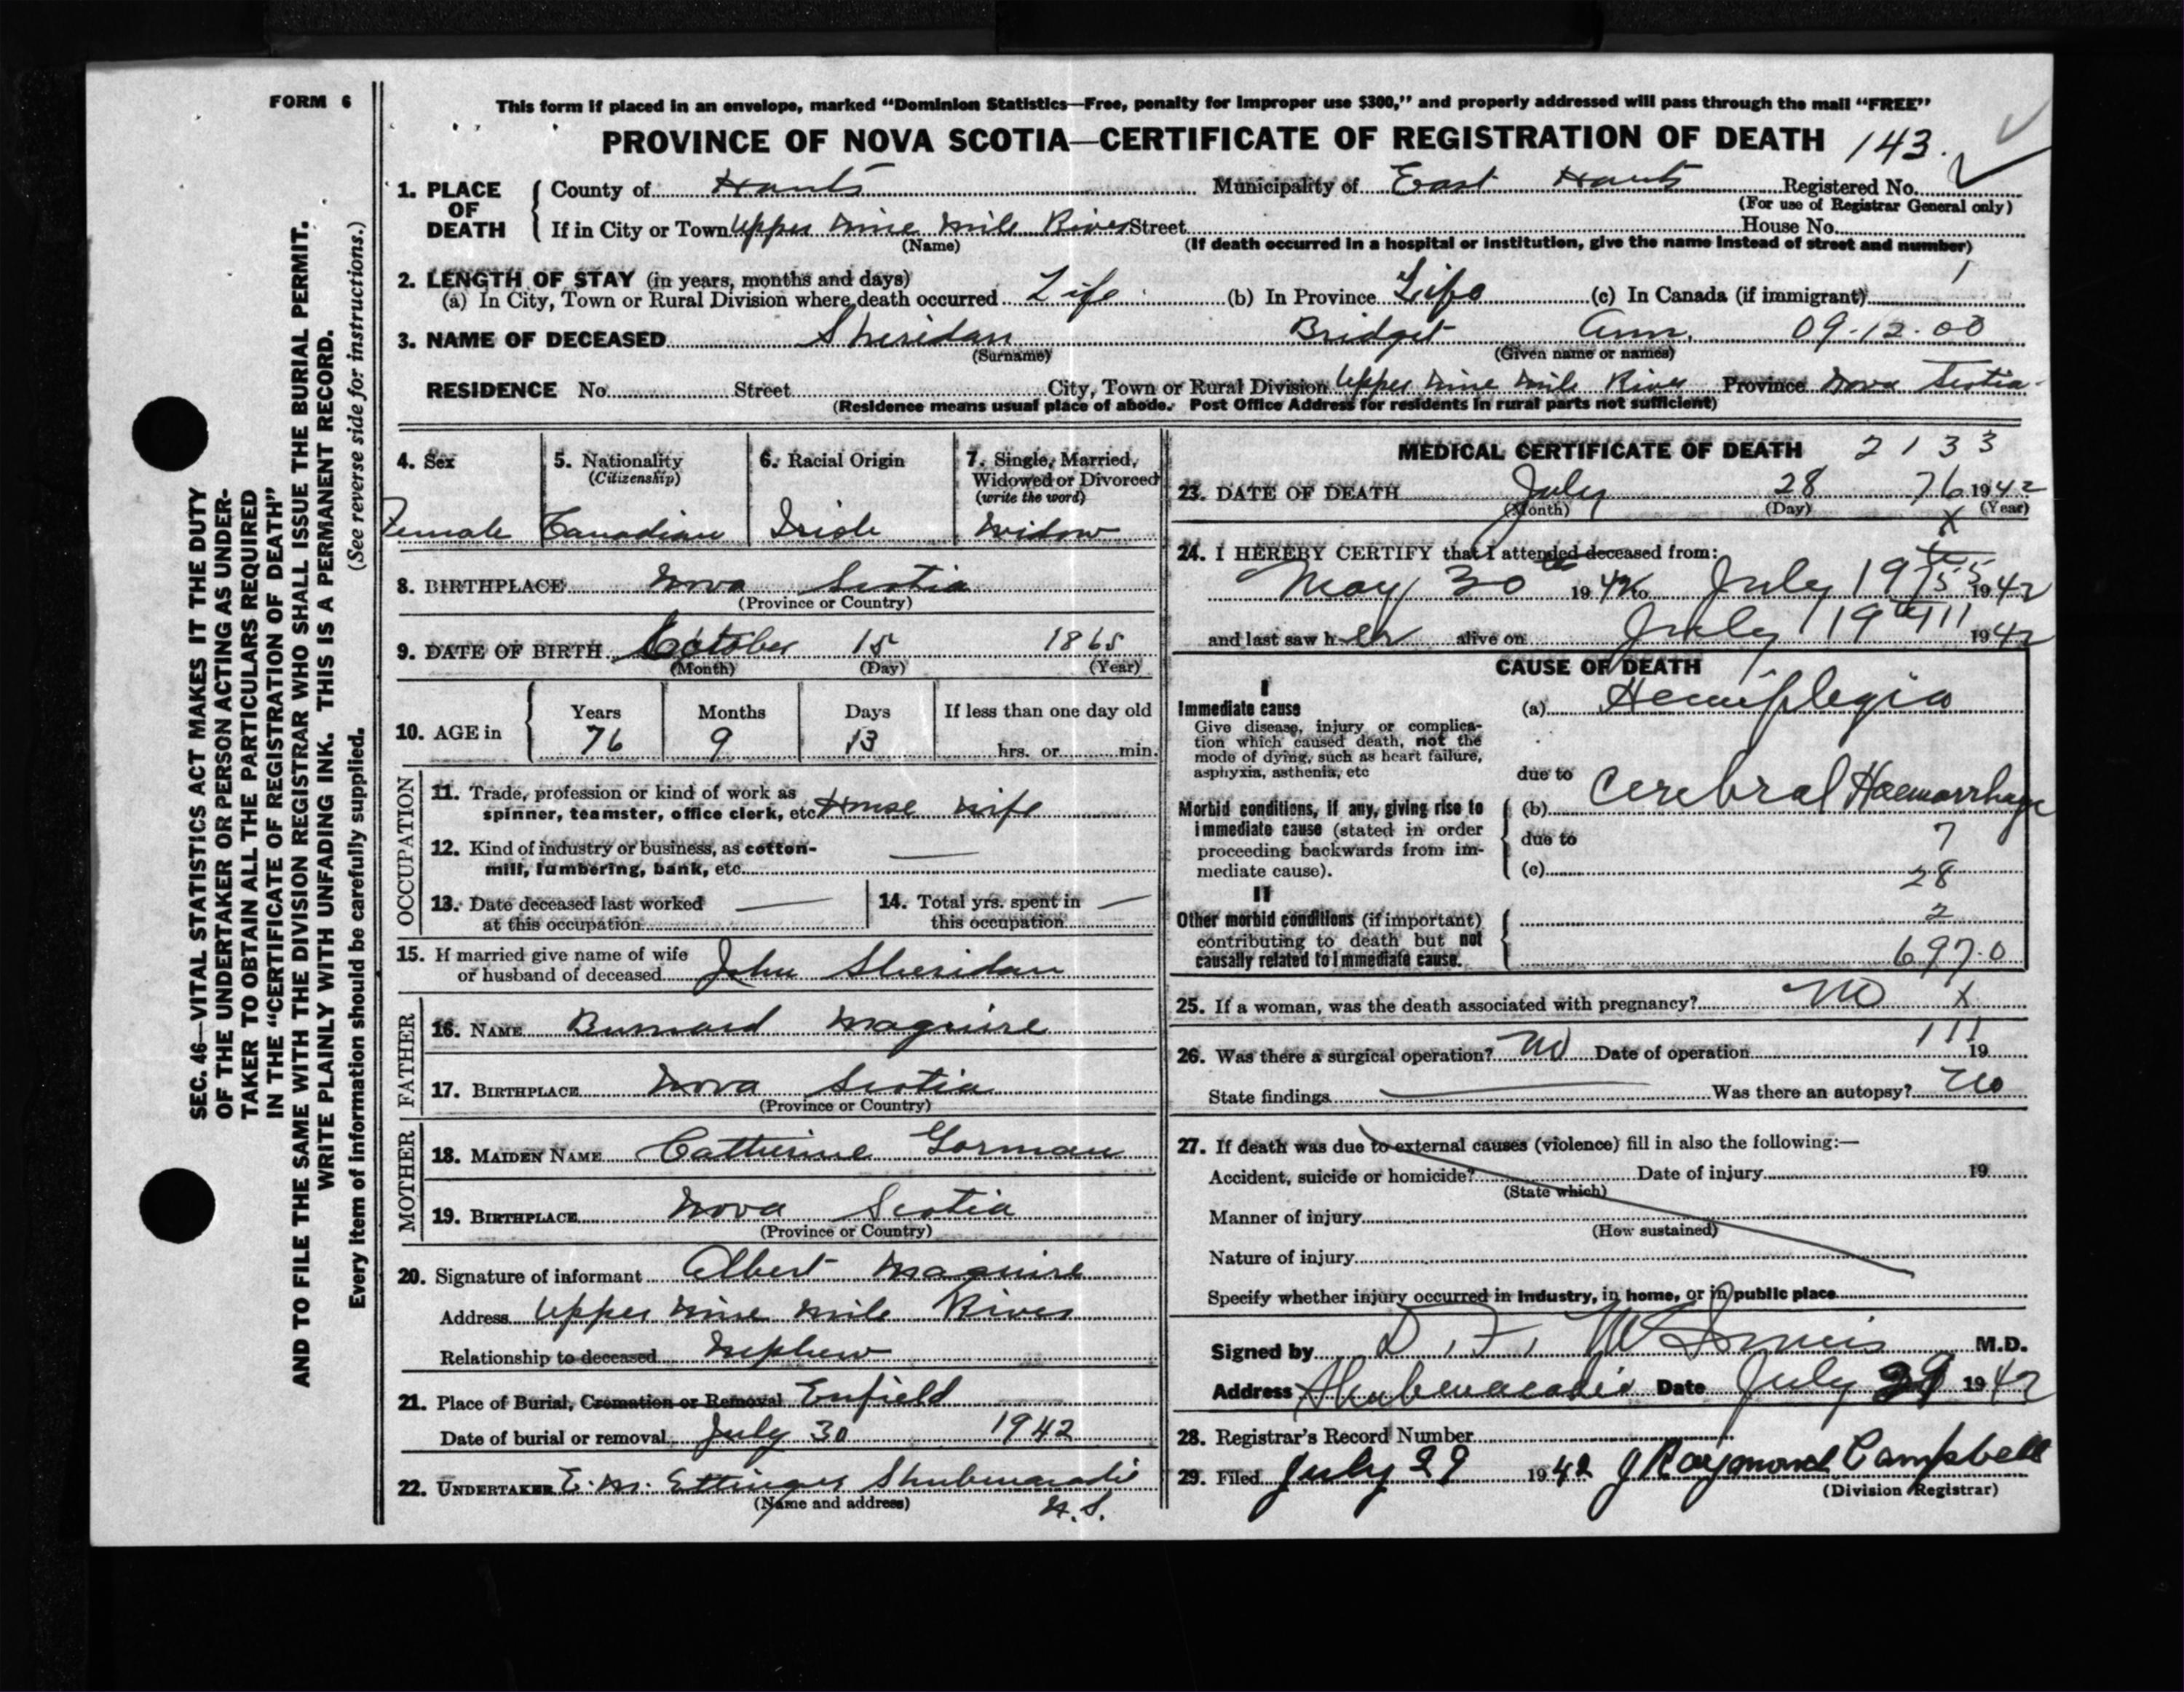 FORM 6
This form if placed in an envelope, marked “Dominion Statistics—Free, penalty for improper use $300,” and properly addressed will pass through the mail “FREE”
PROVINCE OF NOVA SCOTIA—CERTIFICATE OF REGISTRATION OF DEATH 143.
1. PLACE OF DEATH
County of Hants Municipality of East Hants Registered No.
(For use of Registrar General only)
If in City or Town Upper Nine Mile River Street House No.
(Name) (If death occurred in a hospital or institution, give the name instead of street and number)
2. LENGTH OF STAY (in years, months and days) 1
(a) In City, Town or Rural Division where death occurred Life (b) In Province Life (c) In Canada (if immigrant)
3. NAME OF DECEASED Sheridan Bridget Ann. 09-12-00
(Surname) (Given name or names)
RESIDENCE No. Street City, Town or Rural Division Upper Nine Mile River Province Nova Scotia
(Residence means usual place of abode. Post Office Address for residents in rural parts not sufficient)
4. Sex
Female
5. Nationality
(Citizenship)
Canadian
6. Racial Origin
Irish
7. Single, Married,
Widowed or Divorced
(write the word)
Widow
8. BIRTHPLACE Nova Scotia
(Province or Country)
9. DATE OF BIRTH October 15 1865
(Month) (Day) (Year)
10. AGE in
Years Months Days If less than one day old
76 9 13 hrs. or min.
OCCUPATION
11. Trade, profession or kind of work as
spinner, teamster, office clerk, etc. House Wife
12. Kind of industry or business, as cotton-
mill, lumbering, bank, etc. —
13. Date deceased last worked
at this occupation —
14. Total yrs. spent in
this occupation —
15. If married give name of wife
or husband of deceased John Sheridan
FATHER
16. NAME Burnard Maguire
17. BIRTHPLACE Nova Scotia
(Province or Country)
MOTHER
18. MAIDEN NAME Catherine Gorman
19. BIRTHPLACE Nova Scotia
(Province or Country)
20. Signature of informant Albert Maguire
Address Upper Nine Mile River
Relationship to deceased Nephew
21. Place of Burial, Cremation or Removal Enfield
Date of burial or removal July 30 1942
22. UNDERTAKER E. M. Ettinger Shubenacadie
(Name and address) N.S.
MEDICAL CERTIFICATE OF DEATH 2133
23. DATE OF DEATH July 28 76 1942
(Month) (Day) (Year)
X
24. I HEREBY CERTIFY that I attended deceased from:
May 30th 1942 to July 19th 55 1942
and last saw her alive on July 19th 111 1942
CAUSE OF DEATH
I
Immediate cause
Give disease, injury or complica-
tion which caused death, not the
mode of dying, such as heart failure,
asphyxia, asthenia, etc
(a) Hemiplegia
due to
Morbid conditions, if any, giving rise to
immediate cause (stated in order
proceeding backwards from im-
mediate cause).
(b) Cerebral Haemorrhage
due to 7
(c) 28
II
Other morbid conditions (if important)
contributing to death but not
causally related to immediate cause.
2
697.0
25. If a woman, was the death associated with pregnancy? No X
26. Was there a surgical operation? No Date of operation 111 19
State findings — Was there an autopsy? No
27. If death was due to external causes (violence) fill in also the following:—
Accident, suicide or homicide? Date of injury 19
(State which)
Manner of injury
(How sustained)
Nature of injury
Specify whether injury occurred in industry, in home, or in public place
Signed by D. F. McInnis M.D.
Address Shubenacadie Date July 29 1942
28. Registrar's Record Number
29. Filed July 29 1942 J Raymond Campbell
(Division Registrar)
SEC. 46—VITAL STATISTICS ACT MAKES IT THE DUTY
OF THE UNDERTAKER OR PERSON ACTING AS UNDER-
TAKER TO OBTAIN ALL THE PARTICULARS REQUIRED
IN THE “CERTIFICATE OF REGISTRATION OF DEATH”
AND TO FILE THE SAME WITH THE DIVISION REGISTRAR WHO SHALL ISSUE THE BURIAL PERMIT.
WRITE PLAINLY WITH UNFADING INK. THIS IS A PERMANENT RECORD.
Every item of information should be carefully supplied. (See reverse side for instructions.)